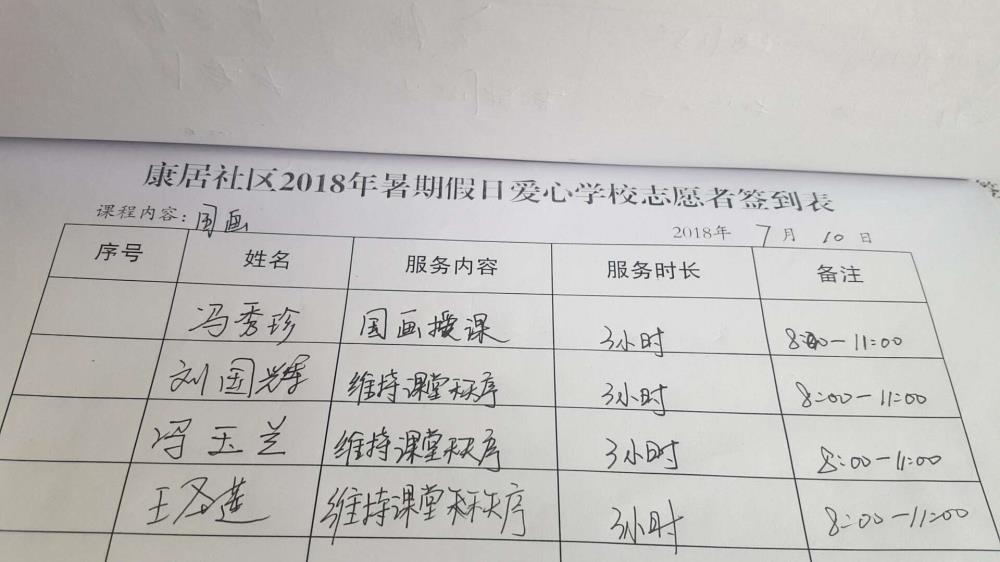 康居社区2018年暑期假日爱心学校志愿者签到表
课程内容:国画 2018年 7月 10日
序号 姓名 服务内容 服务时长 备注
冯秀珍 国画授课 3小时 8:00-11:00
刘国辉 维持课堂秩序 3小时 8:00-11:00
冯玉兰 维持课堂秩序 3小时 8:00-11:00
王 莲 维持课堂秩序 3小时 8:00-11:00